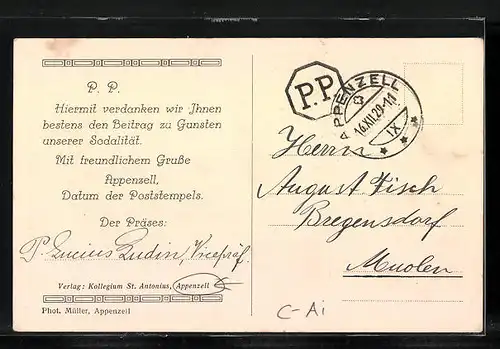 P. P.
Hiermit verdanken wir Ihnen
bestens den Beitrag zu Gunsten
unserer Sodalität.
Mit freundlichem Gruße
Appenzell,
Datum der Poststempels.
Der Präses:
P. Lucius Ludin, Vicepräf.
Verlag: Kollegium St. Antonius, Appenzell
Phot. Müller, Appenzell
P.P.
APPENZELL
16.XII.29-11
IX
Herrn
August Fisch
Bregensdorf
Muolen
C-Ai